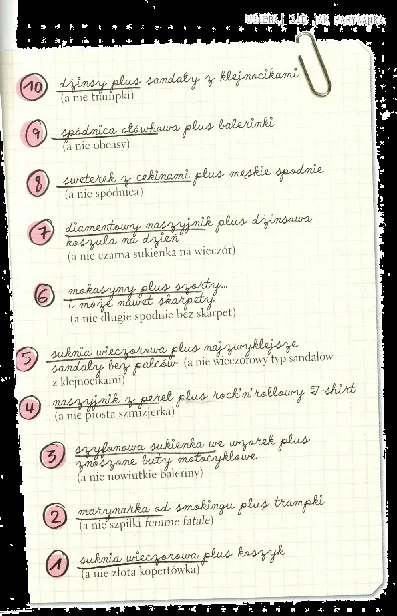 10 dżinsy plus sandały z klejnocikami
(a nie trampki)
9 spódnica ołówkowa plus balerinki
(a nie obcasy)
8 sweterek z cekinami plus męskie spodnie
(a nie spódnica)
7 diamentowy naszyjnik plus dżinsowa
koszula na dzień
(a nie czarna sukienka na wieczór)
6 mokasyny plus szorty...
i może nawet skarpety
(a nie długie spodnie bez skarpet)
5 suknia wieczorowa plus najzwyklejsze
sandały bez palców (a nie wieczorowy typ sandałów
z klejnocikami)
4 naszyjnik z pereł plus rock'n'rollowy T-shirt
(a nie prosta szmizjerka)
3 szyfonowa sukienka we wzorek plus
znoszone buty motocyklowe
(a nie nowiutkie baleriny)
2 marynarka od smokingu plus trampki
(a nie szpilki femme fatale)
1 suknia wieczorowa plus koszyk
(a nie złota kopertówka)